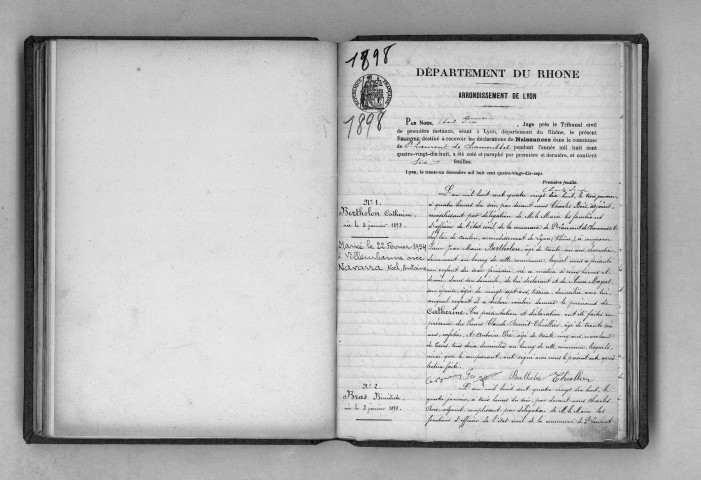 1898
DÉPARTEMENT DU RHONE
ARRONDISSEMENT DE LYON
1898
PAR NOUS, Juge près le Tribunal civil
de première instance, séant à Lyon, département du Rhône, le présent
REGISTRE destiné à recevoir les déclarations de Naissances dans la commune
de St Laurent de Chamousset pendant l'année mil huit cent
quatre-vingt-dix-huit, a été coté et paraphé par première et dernière, et contient
feuilles.
Lyon, le trente-un décembre mil huit cent quatre-vingt-dix-sept.
Première feuille.
N° 1.
Berthelon Catherine
née le 3 janvier 1898.
Marié le 22 Février 1924
à Villeurbanne avec
Navarra Noël Antoine
L'an mil huit cent quatre vingt dix huit, le trois janvier,
à quatre heures du soir, par devant nous Charles Bois, adjoint,
remplissant par délégation de M. le Maire les fonctions
d'officier de l'état civil de la commune de St Laurent de Chamousset,
chef lieu de canton, arrondissement de Lyon (Rhône), a comparu
Jean Marie Berthelon, âgé de trente un ans,
demeurant au bourg de cette commune, lequel nous a présenté
un enfant du sexe féminin, né ce matin à onze heures et
demie, dans son domicile, de lui déclarant et de
son épouse, âgée de vingt sept ans, domiciliée avec lui,
auquel enfant il a déclaré vouloir donner le prénom de
Catherine. Ces présentation et déclaration ont été faites en
présence des sieurs Claude Benoit Thiollier, âgé de trente six
ans, et Antoine âgé de trente cinq ans,
tous deux domiciliés au bourg de cette commune, lesquels,
ainsi que le comparant, ont signé avec nous le présent acte, après
lecture faite.
Berthelon Thiollier
N° 2.
Bras Bénédicte
née le 3 janvier 1898.
L'an mil huit cent quatre vingt dix huit, le
quatre janvier, à trois heures du soir, par devant nous Charles
Bois, adjoint, remplissant par délégation de M. le Maire les
fonctions d'officier de l'état civil de la commune de St Laurent